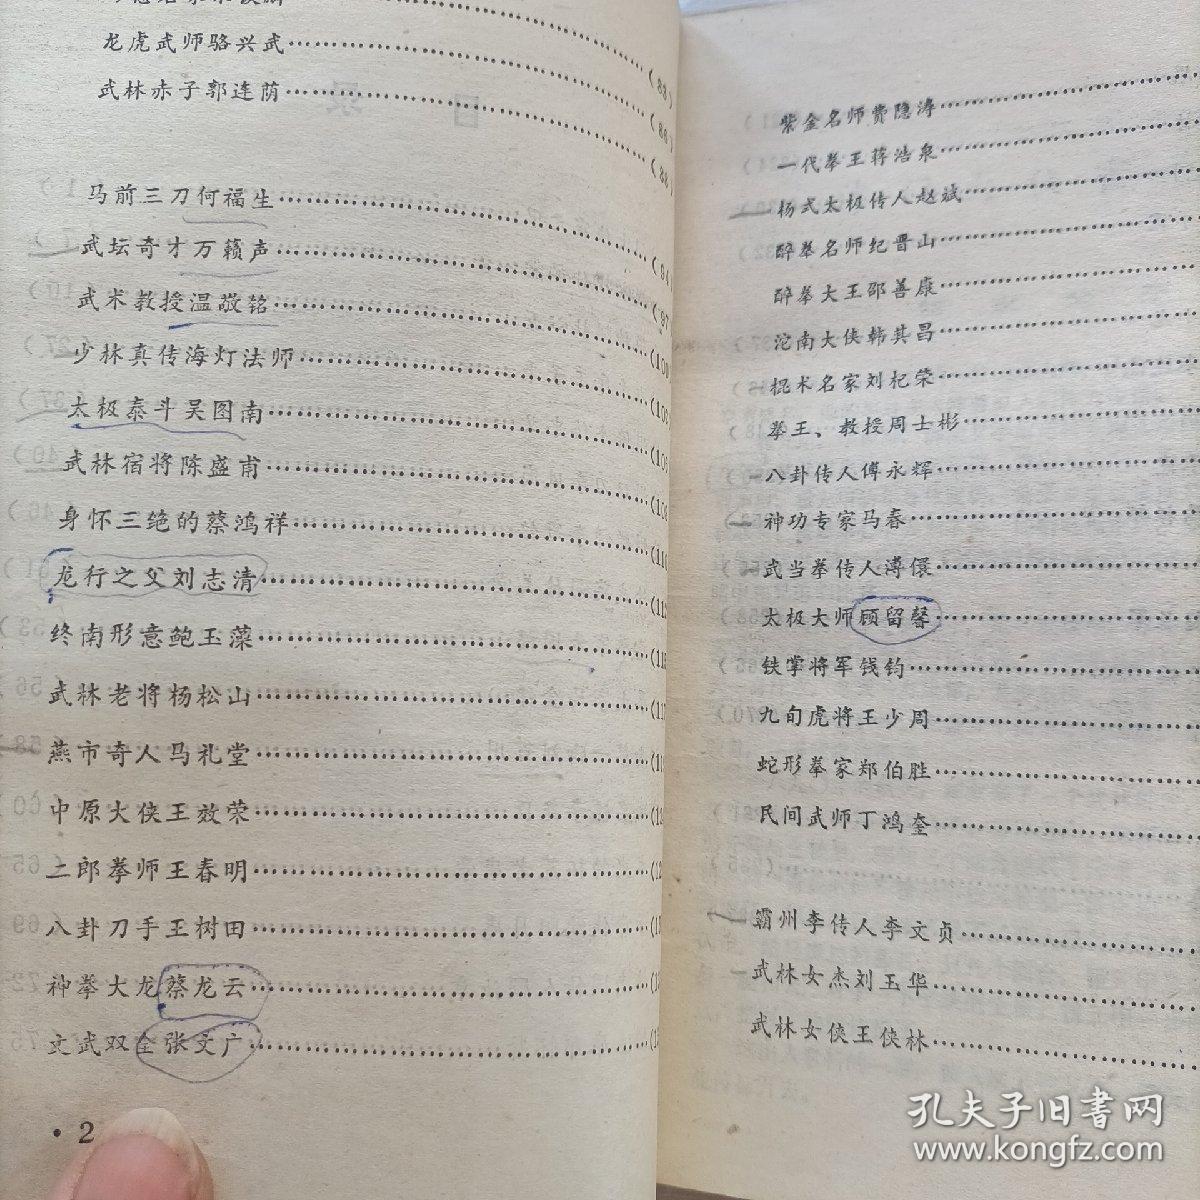 龙虎武师骆兴武
武林赤子郭连荫
马前三刀何福生
武坛奇才万籁声
武术教授温敬铭
少林真传海灯法师
太极泰斗吴图南
武林宿将陈盛甫
身怀三绝的蔡鸿祥
龙行之父刘志清
终南形意鲍玉藻
武林老将杨松山
燕市奇人马礼堂
中原大侠王效荣
二郎拳师王春明
八卦刀手王树田
神拳大龙蔡龙云
文武双全张文广
• 2
紫金名师费隐涛
一代拳王蒋浩泉
杨式太极传人赵斌
醉拳名师纪晋山
醉拳大王邵善康
沱南大侠韩其昌
棍术名家刘杞荣
拳王、教授周士彬
八卦传人傅永辉
神功专家马春
武当拳传人溥儇
太极大师顾留馨
铁掌将军钱钧
九旬虎将王少周
蛇形拳家郑伯胜
民间武师丁鸿奎
霸州李传人李文贞
武林女杰刘玉华
武林女侠王侠林
孔夫子旧书网
www.kongfz.com